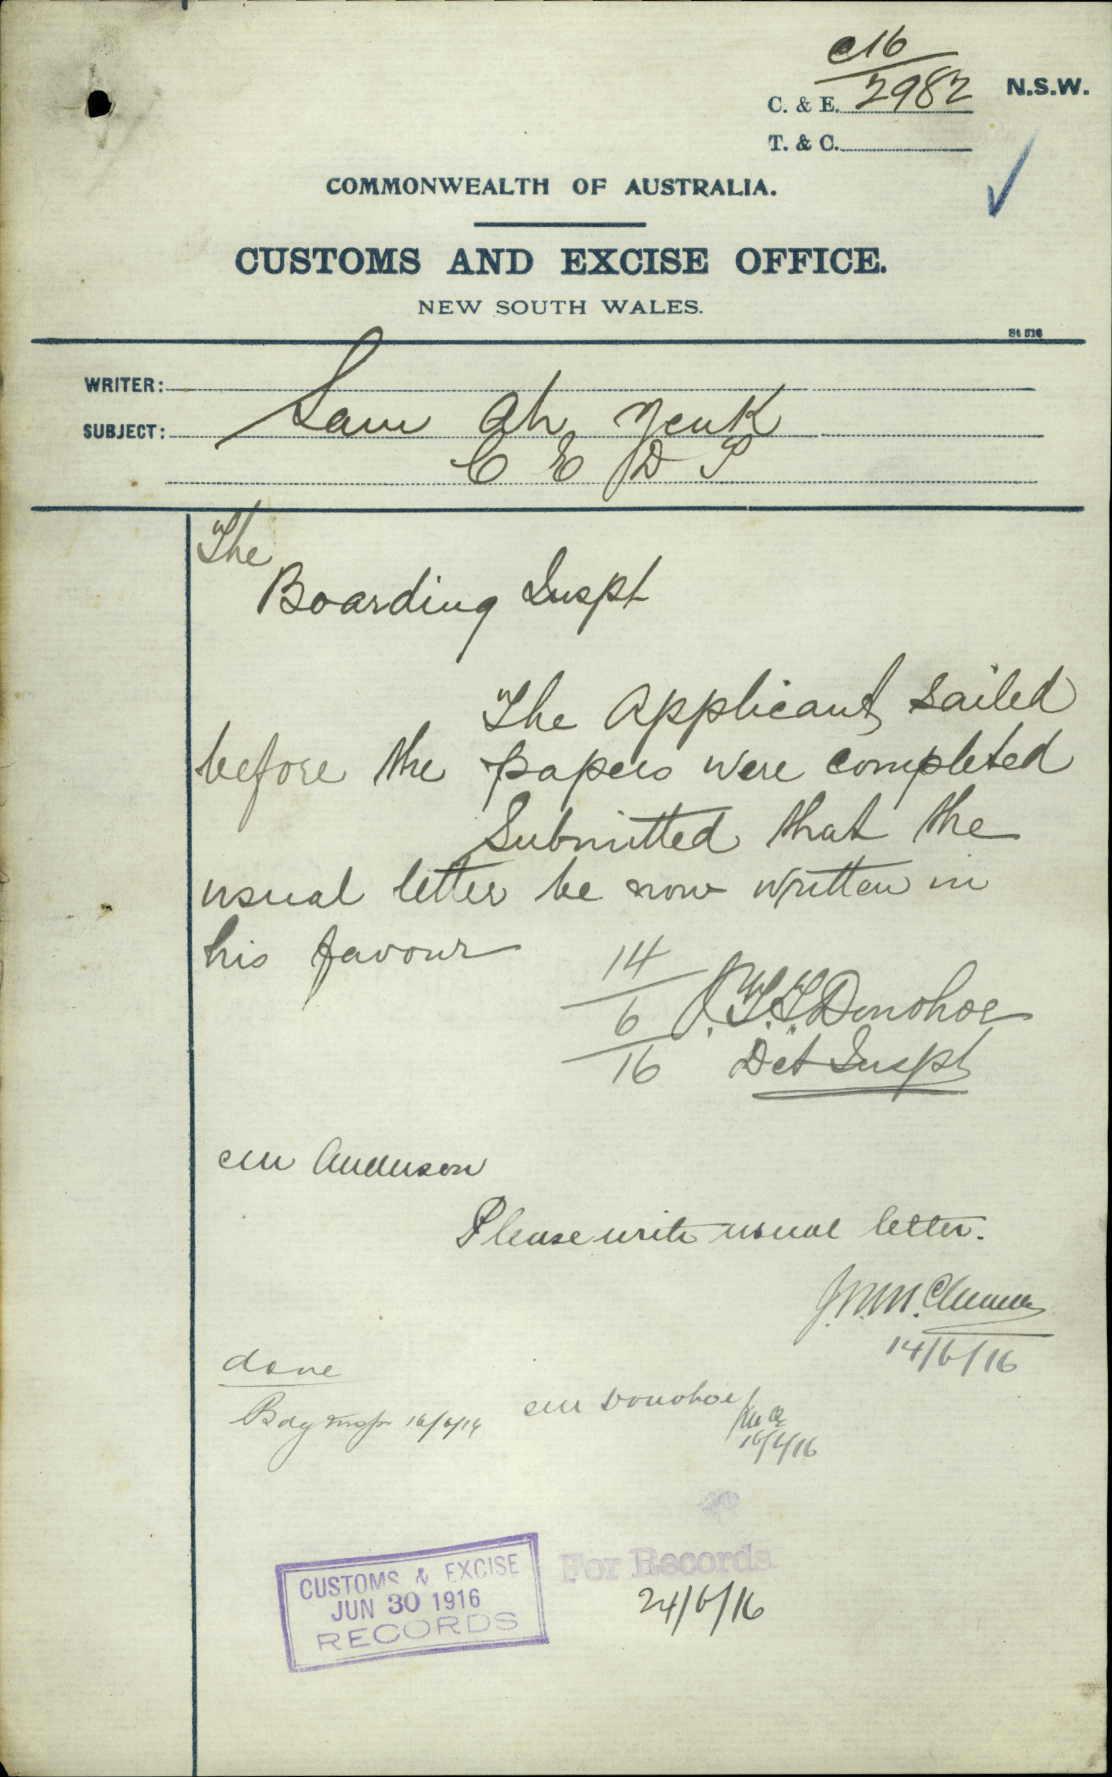 C16
C. & E. 2982 N.S.W.
T. & C.
COMMONWEALTH OF AUSTRALIA.
CUSTOMS AND EXCISE OFFICE.
NEW SOUTH WALES.
WRITER:
SUBJECT: Sam Ah Yenk
C E D P
The
Boarding Inspt
The Applicant sailed
before the papers were completed
Submitted that the
usual letter be now written in
his favour
14
6
16
J.T.T. Donohoe
Det Inspt
Anderson
Please write usual letter.
14/6/16
done
Bdg Inspr 16/6/16
Donohoe
16/6/16
For Records
24/6/16
CUSTOMS & EXCISE
JUN 30 1916
RECORDS